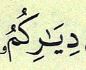 دِيَٰرِكُمُ